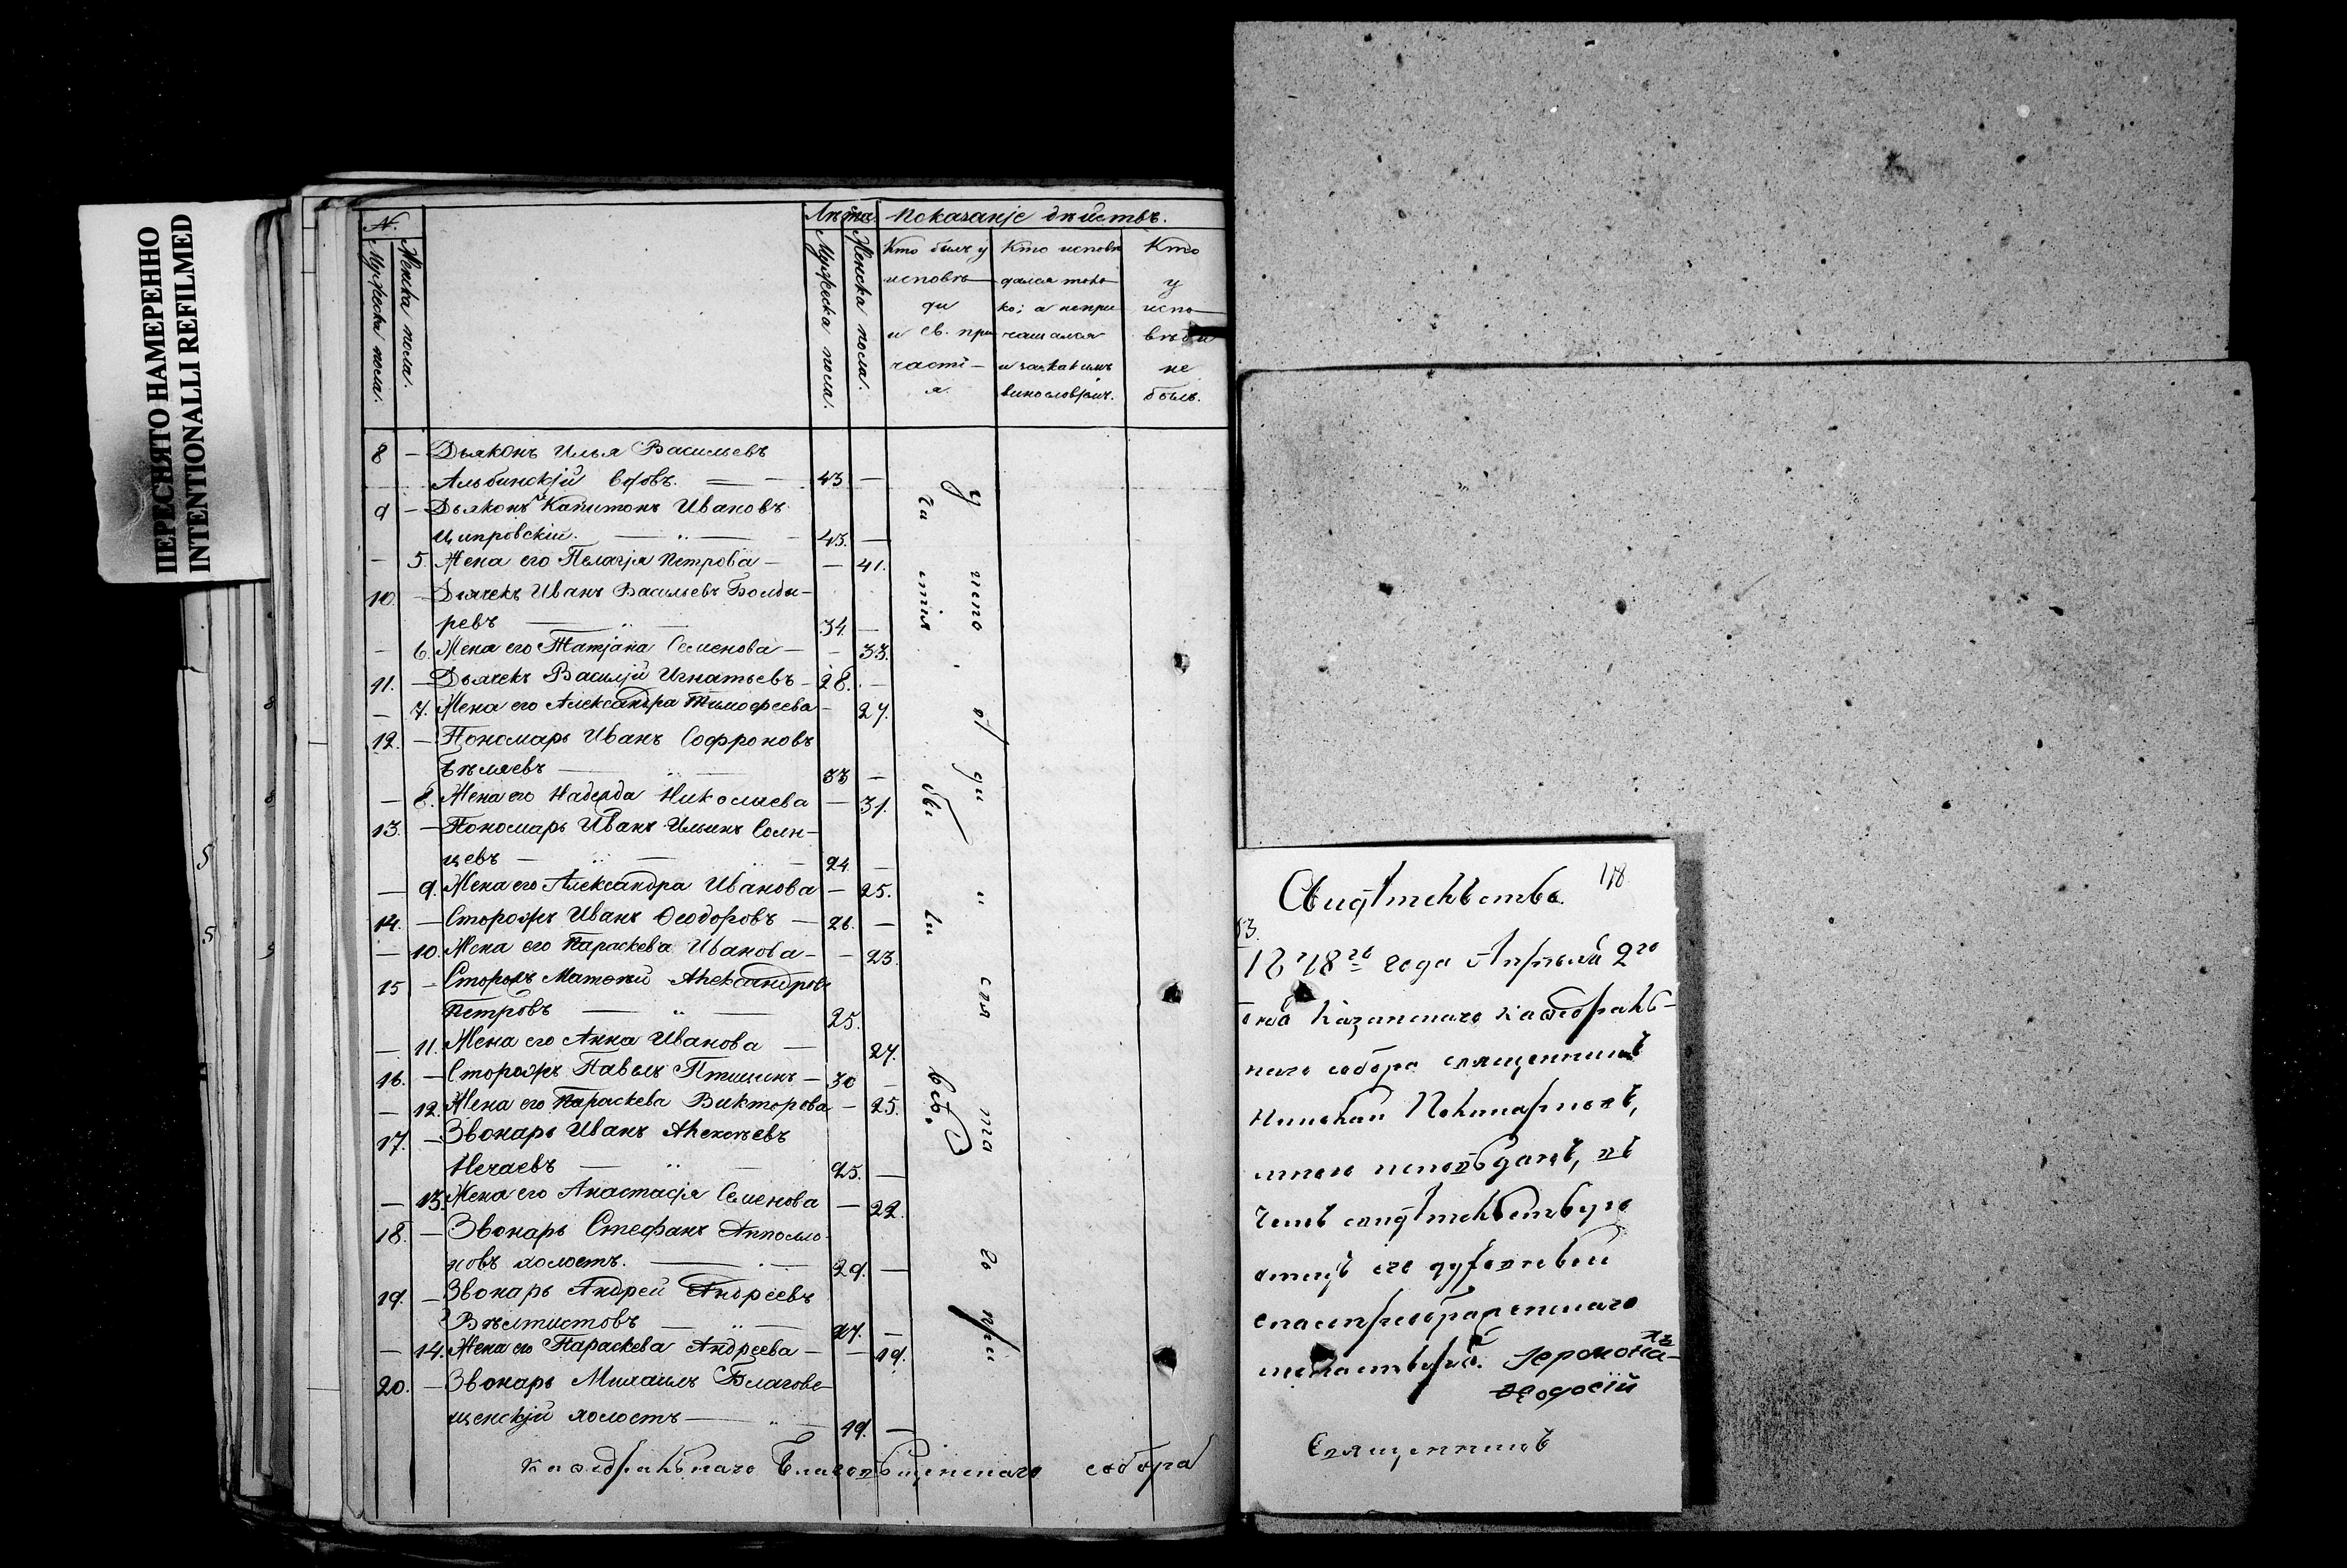 ПЕРЕСНЯТО НАМЕРЕННО
INTENTIONALLI REFILMED
№. Лѣта Показанје дѣйствъ.
Мужеска пола.
Женска пола.
Мужеска пола.
Женска пола.
Кто былъ у
исповѣ
ди
и св. при
часті-
я.
Кто исповѣ
дался токо
ко; а непри
чащался
и за какимъ
винословјемъ.
Кто
у
испо
вѣди
не
былъ.
8 — Дьяконъ Илья Васильевъ
Альбинскјй вдовъ. 43 —
9 — Дьяконъ Капитонъ Ивановъ
Ципровскій. 43. —
— 5. Жена его Пелагјя Петрова — — 41.
10. — Дьячекъ Иванъ Васильевъ Болды-
ревъ 34. —
— 6. Жена его Татјана Семенова — — 33.
11. — Дьячекъ Василјй Игнатьевъ — 28. —
— 7. Жена его Александра Тимофеева — 27.
12. — Пономарь Иванъ Софроновъ
Бѣляевъ 33 —
— 8. Жена его Надежда Николаева — 31.
13. — Пономарь Иванъ Ильинъ Солн-
цевъ 24 —
— 9. Жена его Александра Иванова — 25.
14. — Сторожъ Иванъ Ѳеодоровъ — 26. —
— 10. Жена его Параскева Иванова — — 23.
15 — Сторожъ Матѳей Александровъ
Петровъ 25.
— 11. Жена его Анна Иванова — 27.
16. — Сторожъ Павелъ Птицынъ — 30 —
— 12. Жена его Параскева Викторова — 25.
17. — Звонарь Иванъ Алексѣевъ
Нечаевъ 25. —
— 13. Жена его Анастасјя Семенова — 22.
18. — Звонарь Стефанъ Апполло-
новъ холостъ. 29. —
19. — Звонарь Андрей Андреевъ
27. —
— 14. Жена его Параскева Андреева — — 19.
20. — Звонарь Михаилъ Благове-
щенскјй холостъ 19. —
у испо вѣ ди и свя та го при
ча стія бы ли всѣ.
каѳедральнаго Благовѣщенскаго собора
118
Свидѣтельство.
53.
1848го года Апрѣля 2го
дня Казанскаго каѳедраль-
наго собора священникъ
Николай Поликарповъ,
мною исповѣданъ, въ
чемъ свидѣтельствую
отецъ его духовный
спасопреображенскаго
монастыря. Іеромонахъ
Ѳеодосій
Священникъ